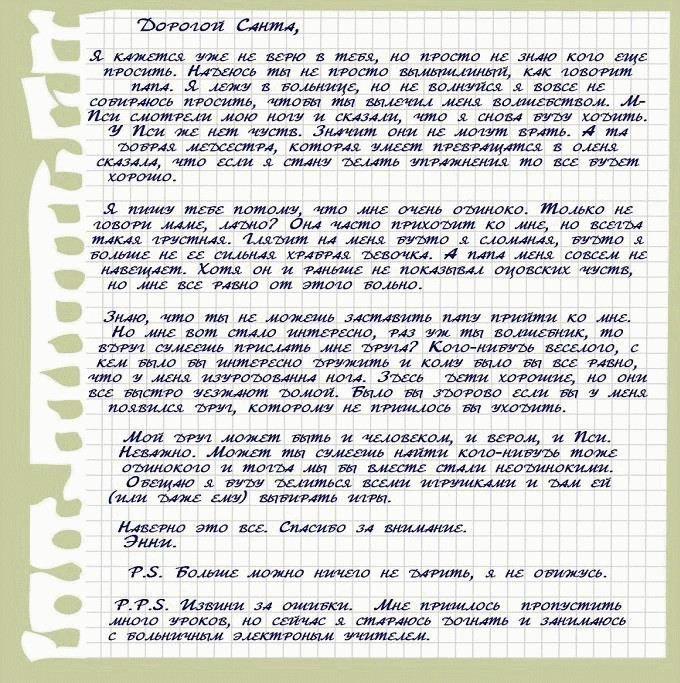 Дорогой Санта,
Я кажется уже не верю в тебя, но просто не знаю кого еще
просить. Надеюсь ты не просто вымышлиный, как говорит
папа. Я лежу в больнице, но не волнуйся я вовсе не
собираюсь просить, чтобы ты вылечил меня волшебством. М-
Пси смотрели мою ногу и сказали, что я снова буду ходить.
У Пси же нет чуств. Значит они не могут врать. А та
добрая медсестра, которая умеет превращатся в оленя
сказала, что если я стану делать упражнения то все будет
хорошо.
Я пишу тебе потому, что мне очень одиноко. Только не
говори маме, ладно? Она часто приходит ко мне, но всегда
такая грустная. Глядит на меня будто я сломаная, будто я
больше не ее сильная храбрая девочка. А папа меня совсем не
навещает. Хотя он и раньше не показывал оцовских чуств,
но мне все равно от этого больно.
Знаю, что ты не можешь заставить папу прийти ко мне.
Но мне вот стало интересно, раз уж ты волшебник, то
вдруг сумеешь прислать мне друга? Кого-нибудь веселого, с
кем было бы интересно дружить и кому было бы все равно,
что у меня изуродованна нога. Здесь дети хорошие, но они
все быстро уезжают домой. Было бы здорово если бы у меня
появился друг, которому не пришлось бы уходить.
Мой друг может быть и человеком, и вером, и Пси.
Неважно. Может ты сумеешь найти кого-нибудь тоже
одинокого и тогда мы бы вместе стали неодинокими.
Обещаю я буду делиться всеми игрушками и дам ей
(или даже ему) выбирать игры.
Наверно это все. Спасибо за внимание.
Энни.
P.S. Больше можно ничего не дарить, я не обижусь.
P.P.S. Извини за ошибки. Мне пришлось пропустить
много уроков, но сейчас я стараюсь догнать и занимаюсь
с больничным электроным учителем.